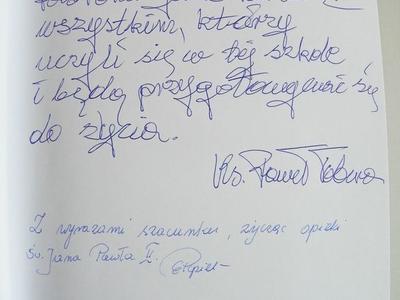 wszystkim, którzy
uczyli się w tej szkole
i będą przygotowywać się
do życia.
Ks. Paweł
Z wyrazami szacunku, życząc opieki
Św. Jana Pawła II.